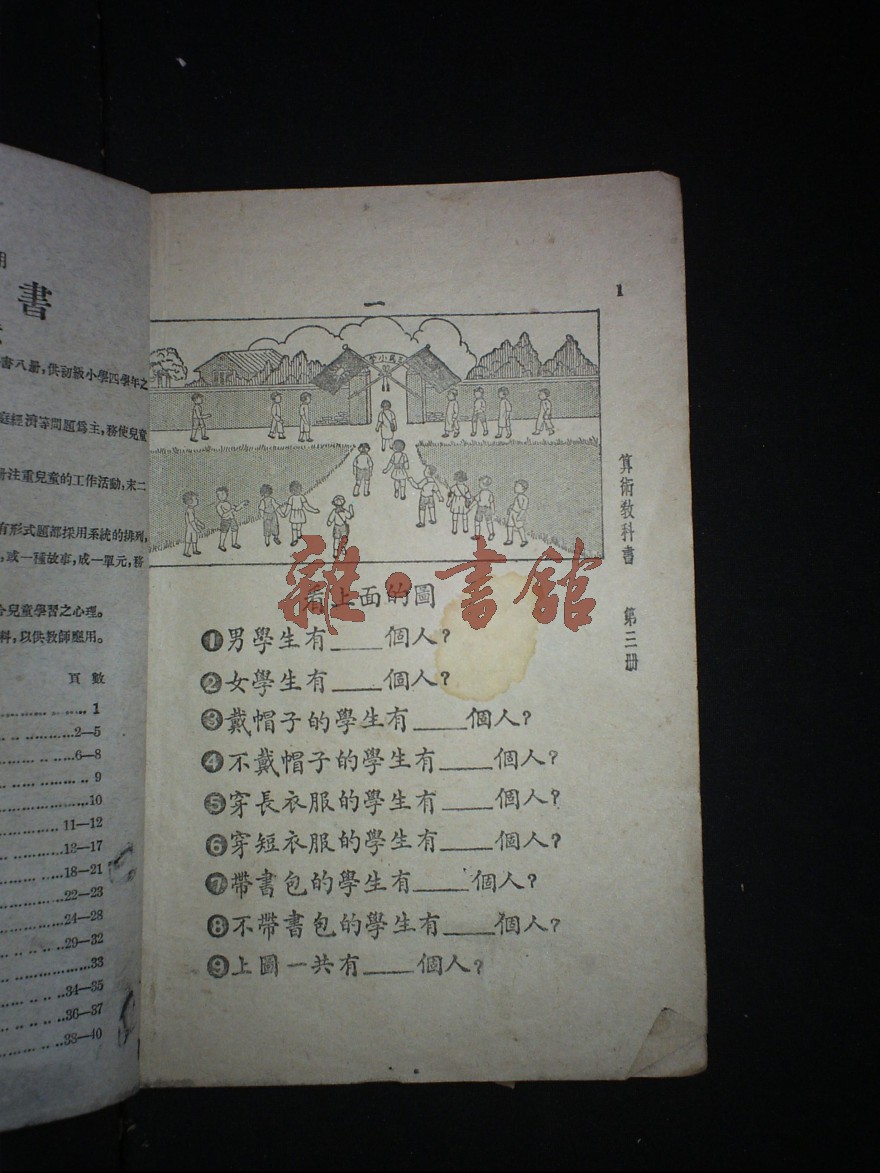 書
書八册，供初級小學四學年之
庭經濟等問題爲主，務使兒童
注重兒童的工作活動，末二
有形式題都採用系統的排列，
，或一種故事，成一單元，務
合兒童學習之心理。
料，以供教師應用。
頁數
1
2—5
6—8
9
10
11—12
13—17
18—21
22—23
24—28
29—32
33
34—35
36—37
38—40
一
1
算術教科書 第三册
看上面的圖
❶男學生有____個人？
❷女學生有____個人？
❸戴帽子的學生有____個人？
❹不戴帽子的學生有____個人？
❺穿長衣服的學生有____個人？
❻穿短衣服的學生有____個人？
❼帶書包的學生有____個人？
❽不帶書包的學生有____個人？
❾上圖一共有____個人？
雜·書館